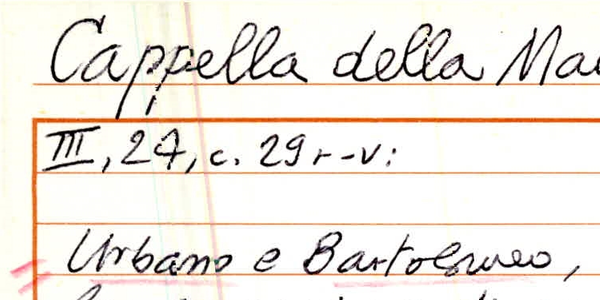 Cappella della Ma
III, 27, c. 29 r-v:
Urbano e Bartolomeo,